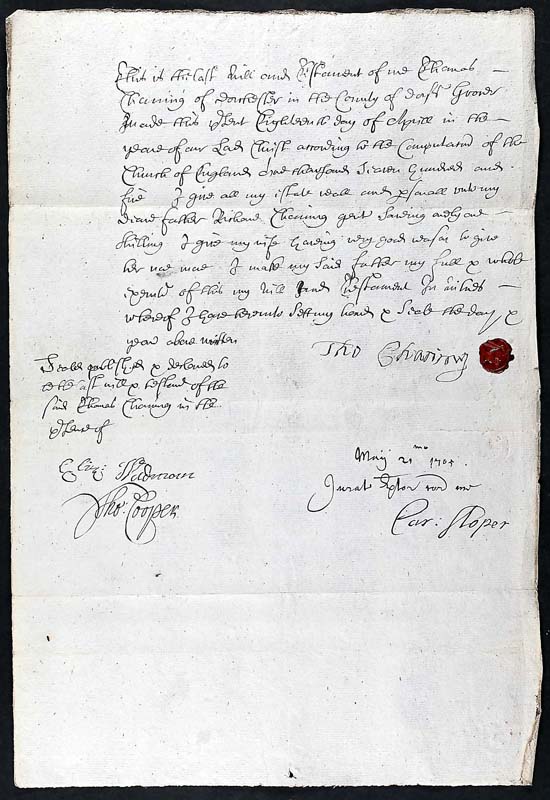 This is the last Will and Testament of me Thomas
Channing of Dorchester in the County of Dorset Grocer
made this pSent Eighteenth day of Aprill in the
yeare of our Lord Christ according to the Computacon of the
Church of England one thousand Seaven Hundred and
five I give all my estate reall and psonall unto my
Deare father Richard Channing gent Saveing only one
shilling I give my wife haveing very good reason to give
her noe more I make my said father my full & whole
Executor of this my Will and Testament In witnes
whereof I have hereunto Sett my hand & Seale the day &
yeare above written
Tho Channing
Sealed published & declared to
be the last will & testamt of the
said Thomas Channing in the
pSence of
Eliz: Wadman
Tho: Cooper
May 21 mo 1705
Jurat Extor cor me
Car: Sloper